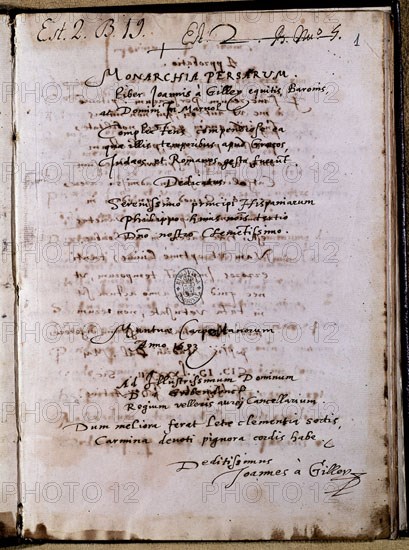 Est. 2. B. 19. Est. 2. B. Nº 5. 1
MONARCHIA PERSARUM.
Liber Joannis à Gilley equitis, Baronis,
ac Domini In Marnol
Complectens compendiose ea
quæ illis temporibus apud Græcos
Judæos et Romanos gesta fuerũt.
Dedicatus
Serenissimo principi Hispaniarum
Philippo
Dño nostro Clemētissimo.
Mantuæ Carpentanorum
Anno 1593
Ad Illustrissimum Dominum
Regium velleris aurei Cancellarium.
Dum meliora ferat Letæ clementia sortis,
Carmina devoti pignora cordis habe
Deditissimus
Joannes à Gilley
PHOTO 12